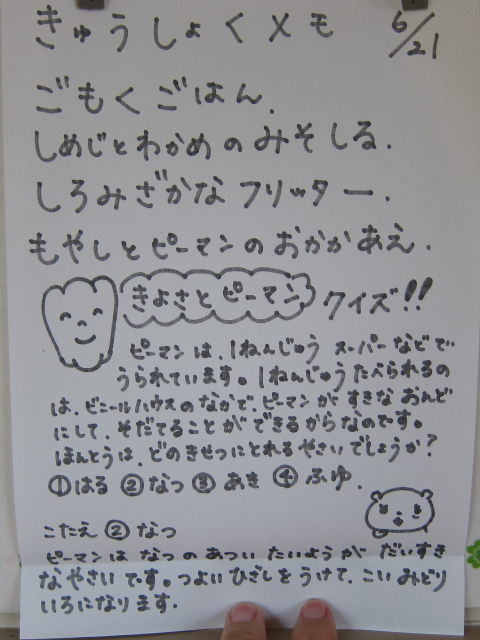 きゅうしょくメモ 6/21
ごもくごはん.
しめじとわかめのみそしる.
しろみざかなフリッター.
もやしとピーマンのおかかあえ.
きよさとピーマン クイズ!!
ピーマンは、1ねんじゅう スーパーなどで
うられています。1ねんじゅうたべられるの
は、ビニールハウスのなかで、ピーマンがすきなおんど
にして、そだてることができるからなのです。
ほんとうは、どのきせつにとれるやさいでしょうか?
①はる ②なつ ③あき ④ふゆ.
こたえ ② なつ
ピーマンはなつのあついたいようがだいすき
なやさいです。つよいひざしをうけて、こいみどり
いろになります.